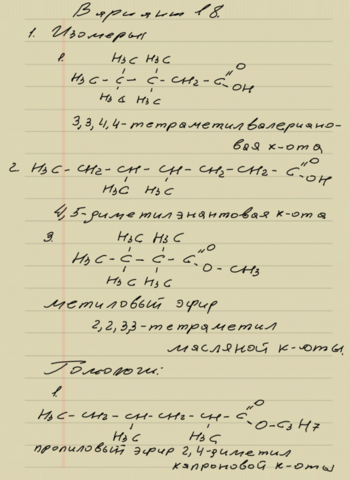 Вариант 18.
1. Изомеры
1.
H₃C H₃C
H₃C - C - C - CH₂ - C =O
H₃C H₃C OH
3,3,4,4-тетраметилвалериано-
вая к-ота
2. H₃C - CH₂ - CH - CH - CH₂ - CH₂ - C =O
H₃C H₃C OH
4,5-диметилэнантовая к-ота
3.
H₃C H₃C
H₃C - C - C - C =O
H₃C H₃C O - CH₃
метиловый эфир
2,2,3,3-тетраметил
масляной к-оты.
Гомологи:
1.
H₃C - CH₂ - CH - CH₂ - CH - C =O
H₃C H₃C O - C₃H₇
пропиловый эфир 2,4-диметил
капроновой к-оты